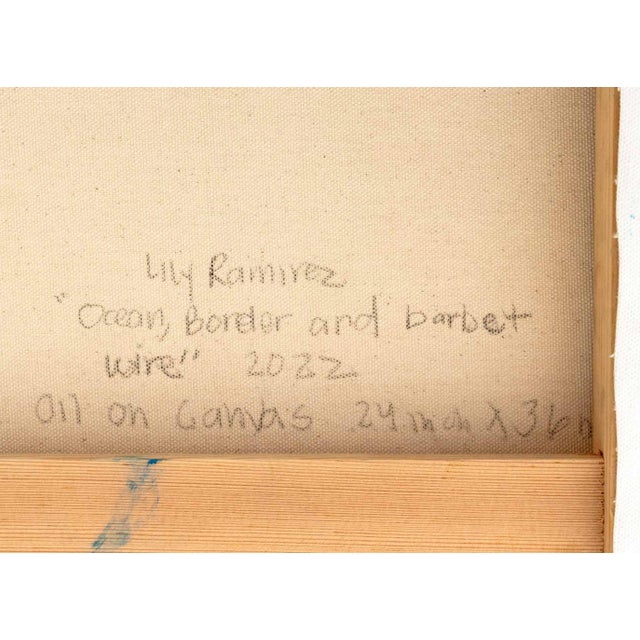 Lily Ramirez
"Ocean, Border and barbet
wire" 2022
Oil on Canvas 24 inch X 36